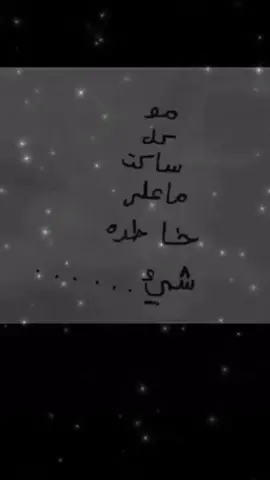 مو
كل
ساكت
ماعلى
خاطره
شيء......